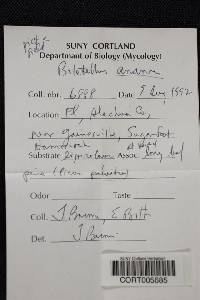 SUNY CORTLAND
Department of Biology (Mycology)
Boletellus ananas
Coll. nbr. 6888 Date 8 Aug 1992
Location Fl, Alachua Co,
near Gainesville, Sugarfoot
Hammock
Substrate Assoc. long leaf
pine (Pinus palustris)
Odor Taste
Coll. J Baroni, E Both
Det. J Baroni
SUNY Cortland Herbarium
CORT005685